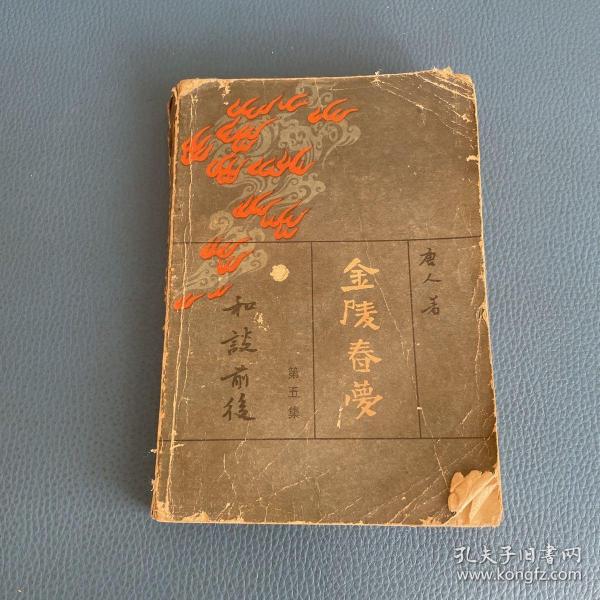 唐人著
金陵春夢
第五集
和談前後
孔夫子旧書网
www.kongfz.com